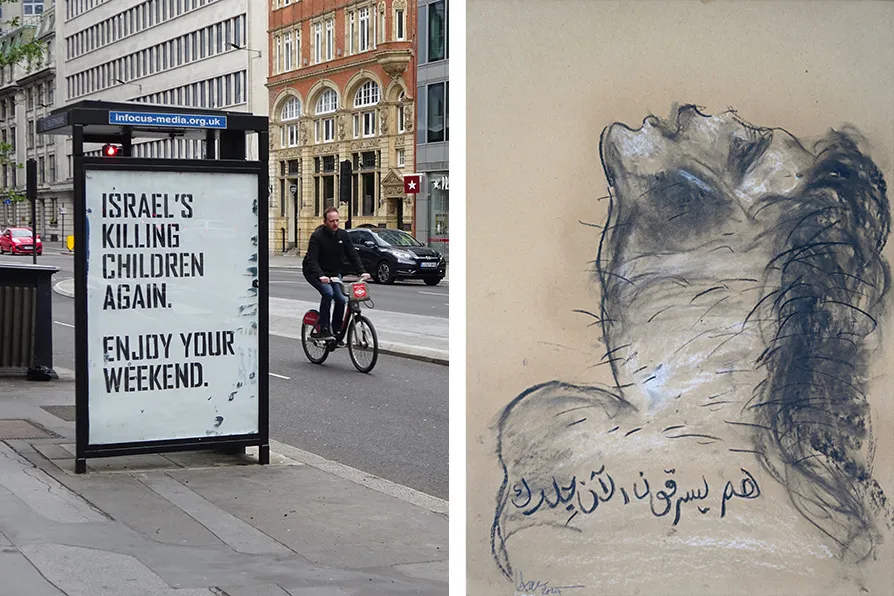 infocus-media.org.uk
ISRAEL'S
KILLING
CHILDREN
AGAIN.
ENJOY YOUR
WEEKEND.
هم يسرقون الآن جلدك